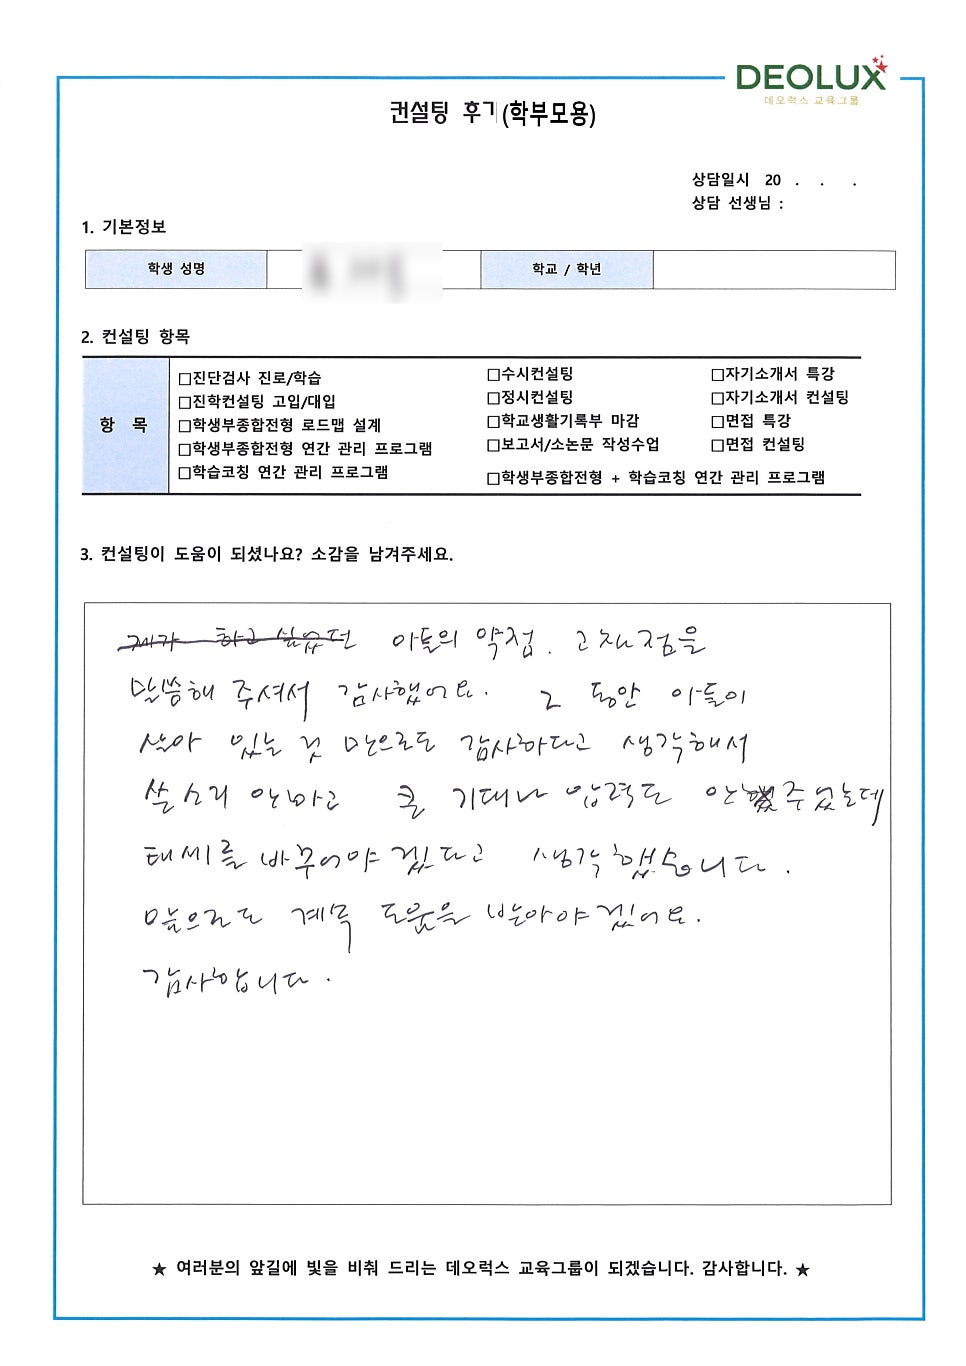 DEOLUX
데오럭스 교육그룹
컨설팅 후기(학부모용)
상담일시 20 . . .
상담 선생님 :
1. 기본정보
학생 성명
학교 / 학년
2. 컨설팅 항목
항 목
□진단검사 진로/학습
□진학컨설팅 고입/대입
□학생부종합전형 로드맵 설계
□학생부종합전형 연간 관리 프로그램
□학습코칭 연간 관리 프로그램
□수시컨설팅
□정시컨설팅
□학교생활기록부 마감
□보고서/소논문 작성수업
□학생부종합전형 + 학습코칭 연간 관리 프로그램
□자기소개서 특강
□자기소개서 컨설팅
□면접 특강
□면접 컨설팅
3. 컨설팅이 도움이 되셨나요? 소감을 남겨주세요.
제가 하고 싶었던 아들의 약점. 고칠점을
말씀해 주셔서 감사했어요. 그 동안 아들이
살아 있는 것 만으로도 감사하다고 생각해서
쓴소리 안하고 큰 기대나 압력도 안 주었는데
태세를 바꾸어야 겠다고 생각했습니다.
앞으로도 계속 도움을 받아야 겠어요.
감사합니다.
★ 여러분의 앞길에 빛을 비춰 드리는 데오럭스 교육그룹이 되겠습니다. 감사합니다. ★